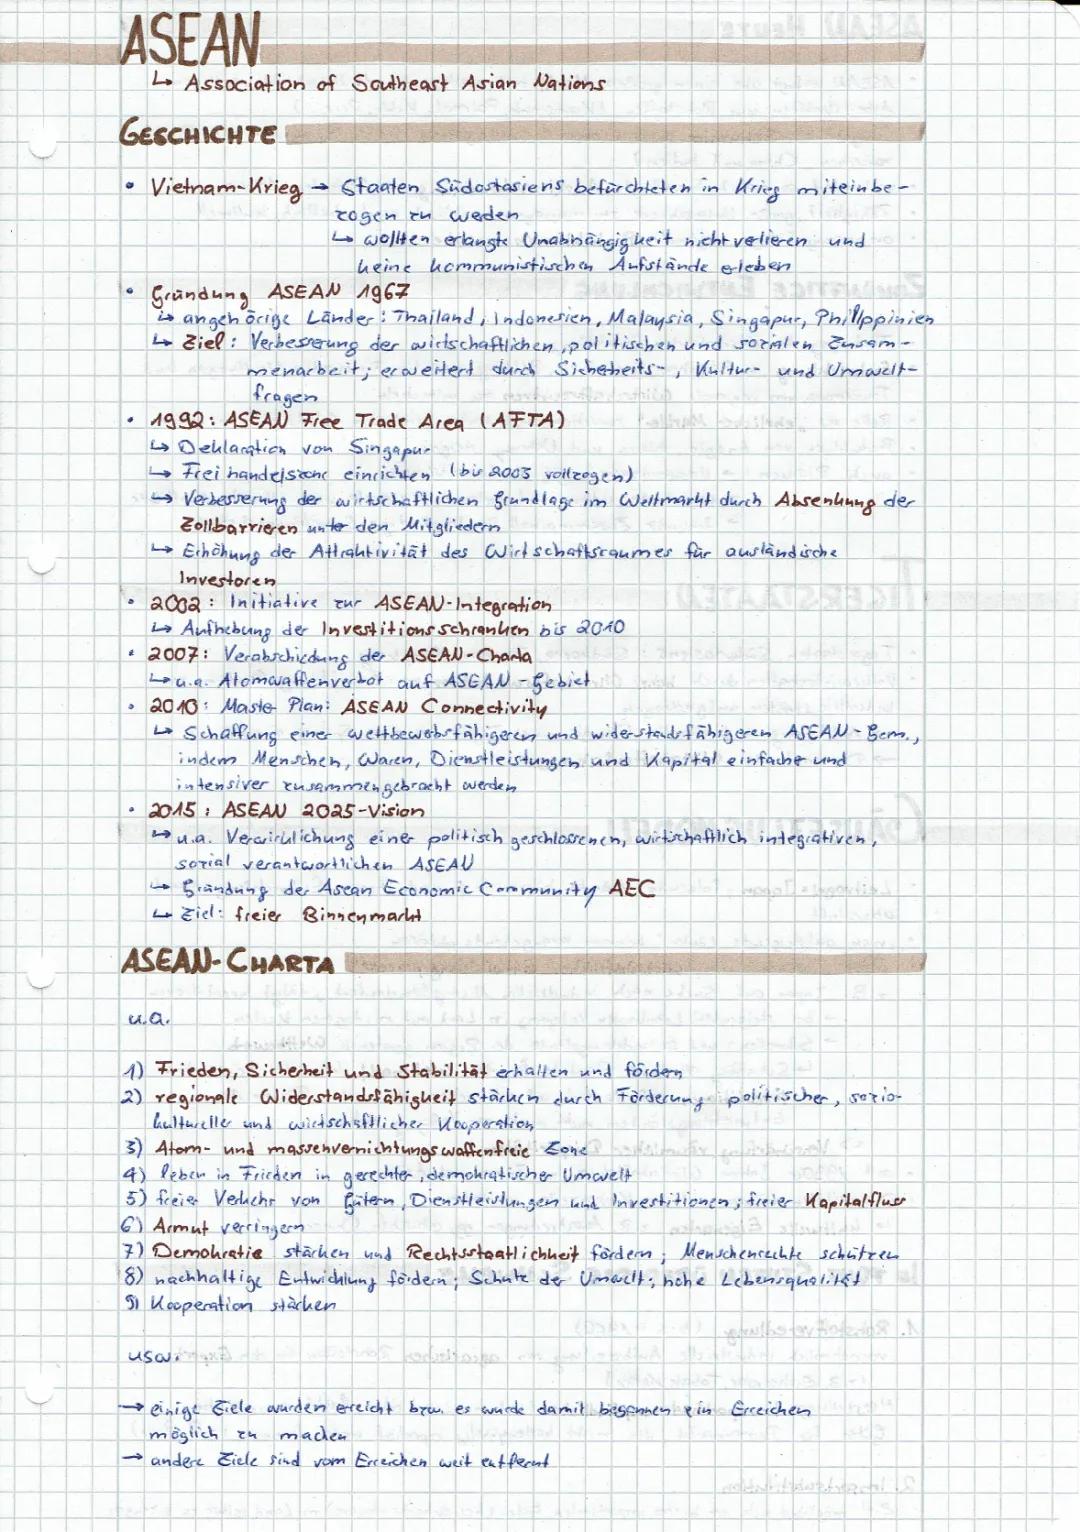 ASEAN
↳ Association of Southeast Asian Nations
GESCHICHTE
• Vietnam-Krieg → Staaten Südostasiens befürchteten in Krieg miteinbe-
zogen zu werden
↳ wollten erlangte Unabhängigkeit nicht verlieren und
keine kommunistischen Aufstände erleben
• Gründung ASEAN 1967
↳ angehörige Länder: Thailand, Indonesien, Malaysia, Singapur, Philippinien
↳ Ziel: Verbesserung der wirtschaftlichen, politischen und sozialen Zusam-
menarbeit; erweitert durch Sicherheits-, Kultur- und Umwelt-
fragen
• 1992: ASEAN Free Trade Area (AFTA)
↳ Deklaration von Singapur
↳ Freihandelszone einrichten (bis 2003 vollzogen)
↳ Verbesserung der wirtschaftlichen Grundlage im Weltmarkt durch Absenkung der
Zollbarrieren unter den Mitgliedern
↳ Erhöhung der Attraktivität des Wirtschaftsraumes für ausländische
Investoren
• 2002: Initiative zur ASEAN-Integration
↳ Aufhebung der Investitionsschranken bis 2010
• 2007: Verabschiedung der ASEAN-Charta
↳ u.a. Atomwaffenverbot auf ASEAN-Gebiet
• 2010: Master Plan: ASEAN Connectivity
↳ Schaffung einer wettbewerbsfähigeren und widerstandsfähigeren ASEAN-Gem.,
indem Menschen, Waren, Dienstleistungen und Kapital einfacher und
intensiver zusammengebracht werden
• 2015: ASEAN 2025-Vision
↳ u.a. Verwirklichung einer politisch geschlossenen, wirtschaftlich integrativen,
sozial verantwortlichen ASEAN
↳ Gründung der Asean Economic Community AEC
↳ Ziel: freier Binnenmarkt
ASEAN-CHARTA
u.a.
1) Frieden, Sicherheit und Stabilität erhalten und fördern
2) regionale Widerstandsfähigkeit stärken durch Förderung politischer, sozio-
kultureller und wirtschaftlicher Kooperation
3) Atom- und massenvernichtungswaffenfreie Zone
4) leben in Frieden in gerechter, demokratischer Umwelt
5) freier Verkehr von Gütern, Dienstleistungen und Investitionen; freier Kapitalfluss
6) Armut verringern
7) Demokratie stärken und Rechtsstaatlichkeit fördern; Menschenrechte schützen
8) nachhaltige Entwicklung fördern; Schutz der Umwelt; hohe Lebensqualität
9) Kooperation stärken
usw.
→ einige Ziele wurden erreicht bzw. es wurde damit begonnen ein Erreichen
möglich zu machen
→ andere Ziele sind vom Erreichen weit entfernt